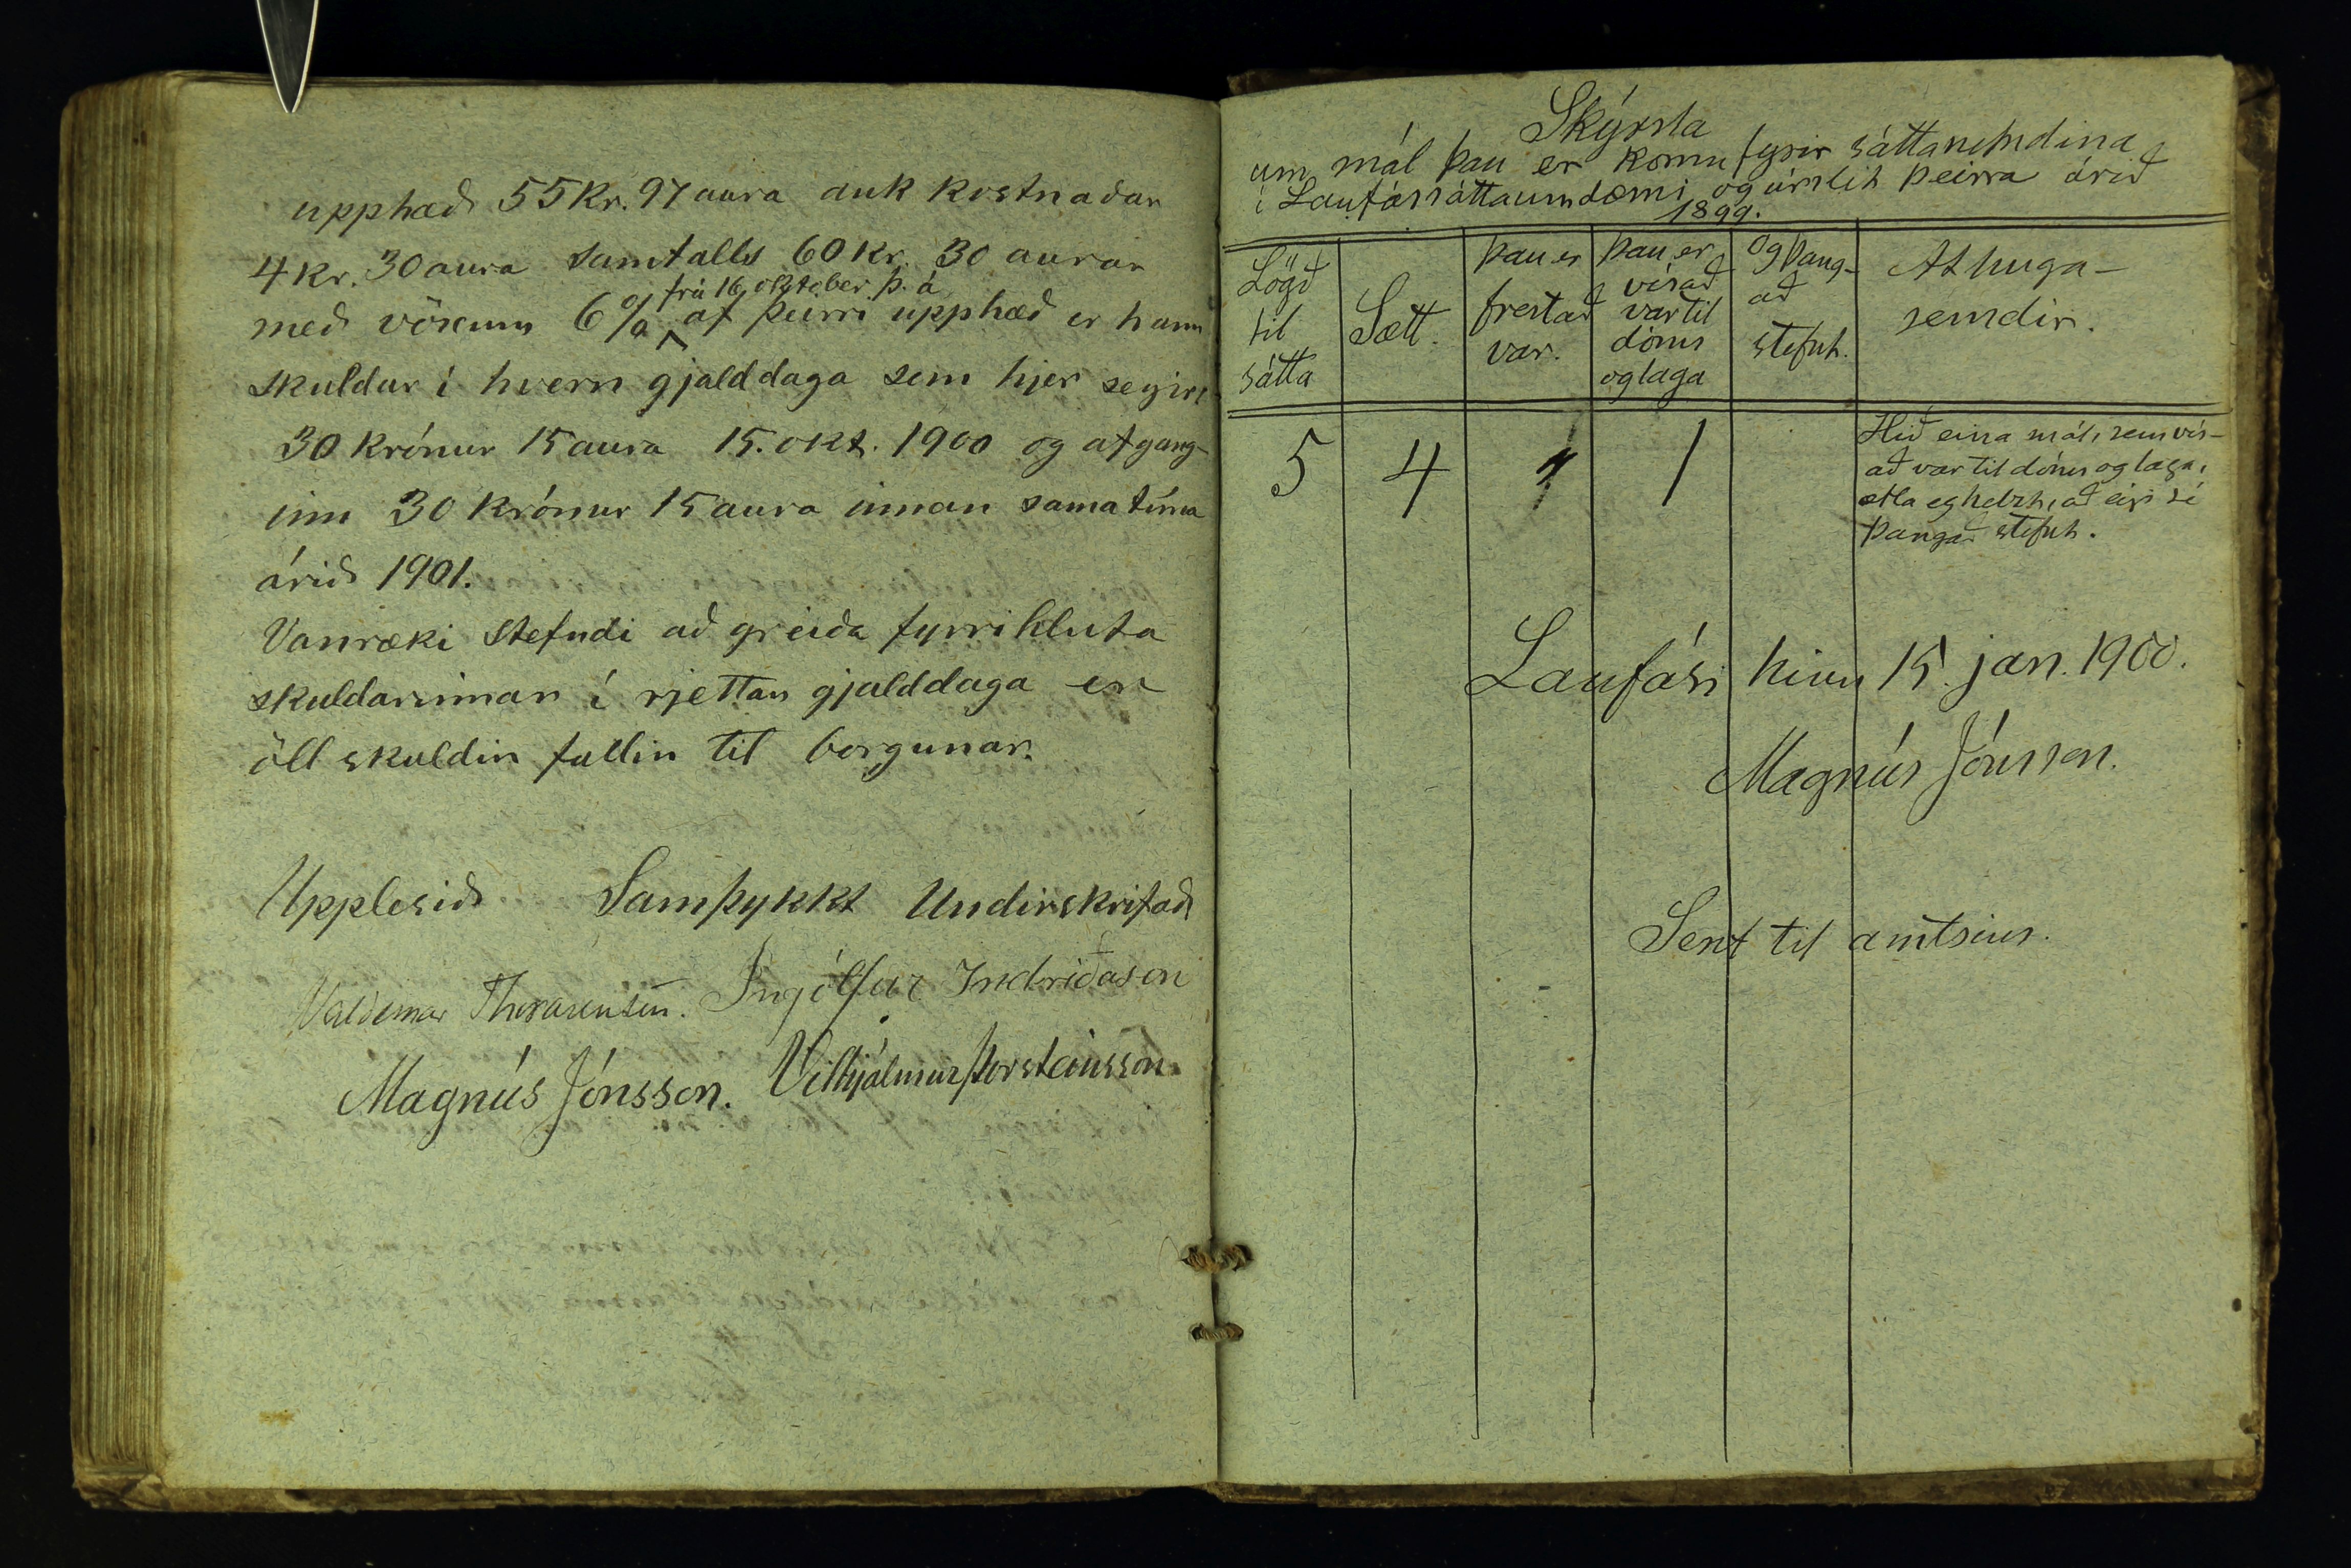 upphæð 55 kr. 97 aura auk kostnaðar
4 kr. 30 aura samtalls 60 kr. 30 aurar
með vöxum 6% frá 16 oktober þ. á af þeirri upphæð er hann
skuldur í hvern gjalddaga sem hjer segir:
30 krónur 15 aura 15. okt. 1900 og afgang-
inn 30 krónur 15 aura innan sama tíma
árið 1901.
Vanræki Stefndi að greiða fyrri hluta
skuldarinnar í rjettan gjalddaga er
öll skuldin fallin til borgunar.
Upplesið Samþykkt Undirskrifað
Valdemar Thorarensen. Ingólfur Indriðason
Magnús Jónsson. Vilhjálmur Þorsteinsson
Skýrsla
um mál þau er komu fyrir sáttanefndina
í Laufássáttaumdæmi og úrslit þeirra árið
1899.
Lögð til sátta
Sætt.
Þau er frestað var.
Þau er vísað var til dóms og laga
Og þang-að stefnt.
Athuga-semdir.
5 4 1 1
Hið eina mál, sem vís-
að var til dóms og laga,
ætla eg helzt, að eigi sé
þangað stefnt.
Laufási hinn 15. jan. 1900.
Magnús Jónsson.
Sent til amtsins.